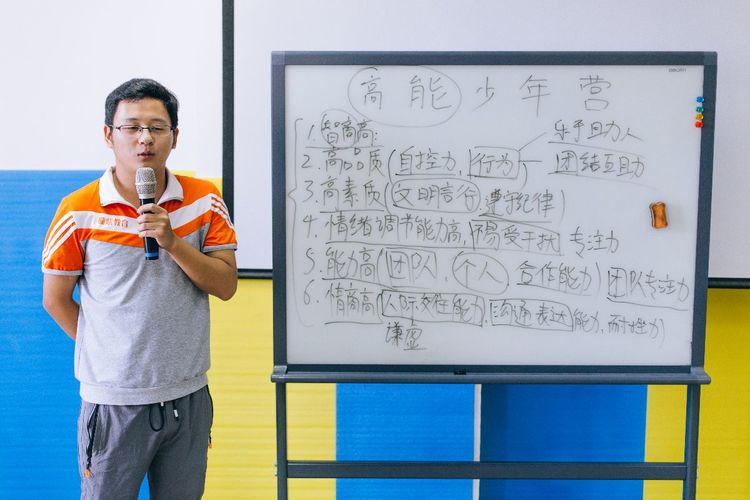 高能少年营
1. 智商高:
乐于助人
2. 高品质(自控力, 行为
团结互助
3. 高素质(文明言行 遵守纪律)
4. 情绪调节能力高, 不易受干扰 专注力
5. 能力高(团队, 个人, 合作能力) 团队专注力
6. 情商高(人际交往能力, 沟通表达能力, 耐挫力)
谦虚
教育